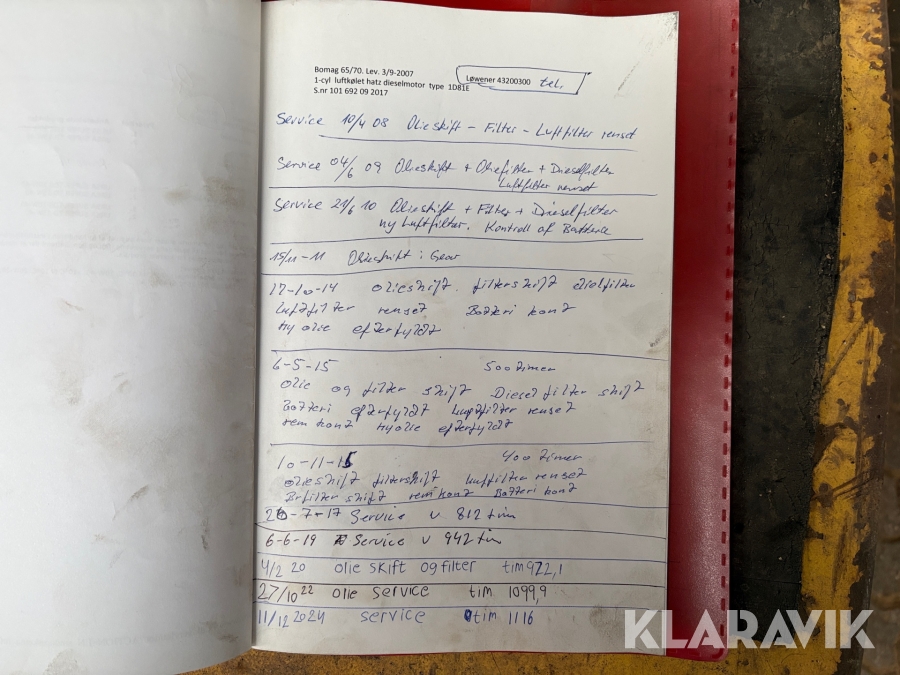 Bomag 65/70. Lev. 3/9-2007
1-cyl luftkølet hatz dieselmotor type 1D81E
S.nr 101 692 09 2017
Løwener 43200300 tel.
Service 10/4 08 Olieskift - Filter - Luftfilter renset
Service 04/6 09 Olieskift + Oliefilter + Dieselfilter
Luftfilter renset
Service 21/6 10 Olieskift + Filter + Dieselfilter
ny Luftfilter. Kontroll af Batterie
15/11-11 Olieskift i Gear
17-10-14 olieshift. filtershift
Luftfilter renset Batteri kont
Hy olie efterfyldt
6-5-15 500 timer
olie og filter shift Diesel filter shift
Batteri efterfyldt Luftfilter renset
rem kont Hy olie efterfyldt
10-11-15 400 timer
olieshift filtershift Luftfilter renset
Brfilter shift rem kont Batteri kont
26-7-17 Service v 812 tim
6-6-19 Service v 942 tim
4/2 20 olie skift og filter tim 972,1
27/10 22 olie service tim 1099,9
11/12 2024 service tim 1116
KLARAVIK